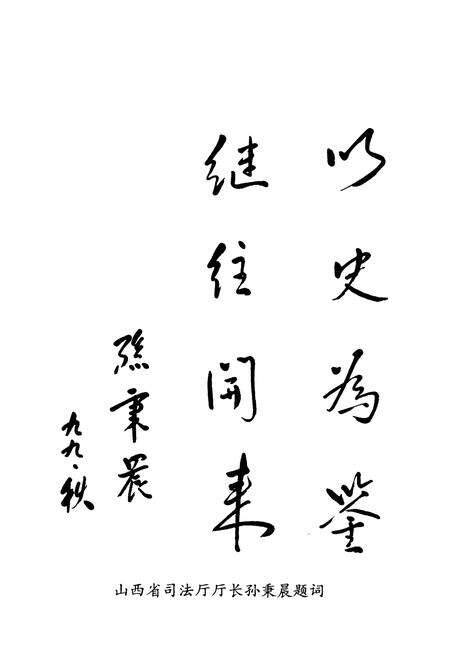 以史為鉴
继往開来
孫秉晨
九九·秋
山西省司法厅厅长孙秉晨题词